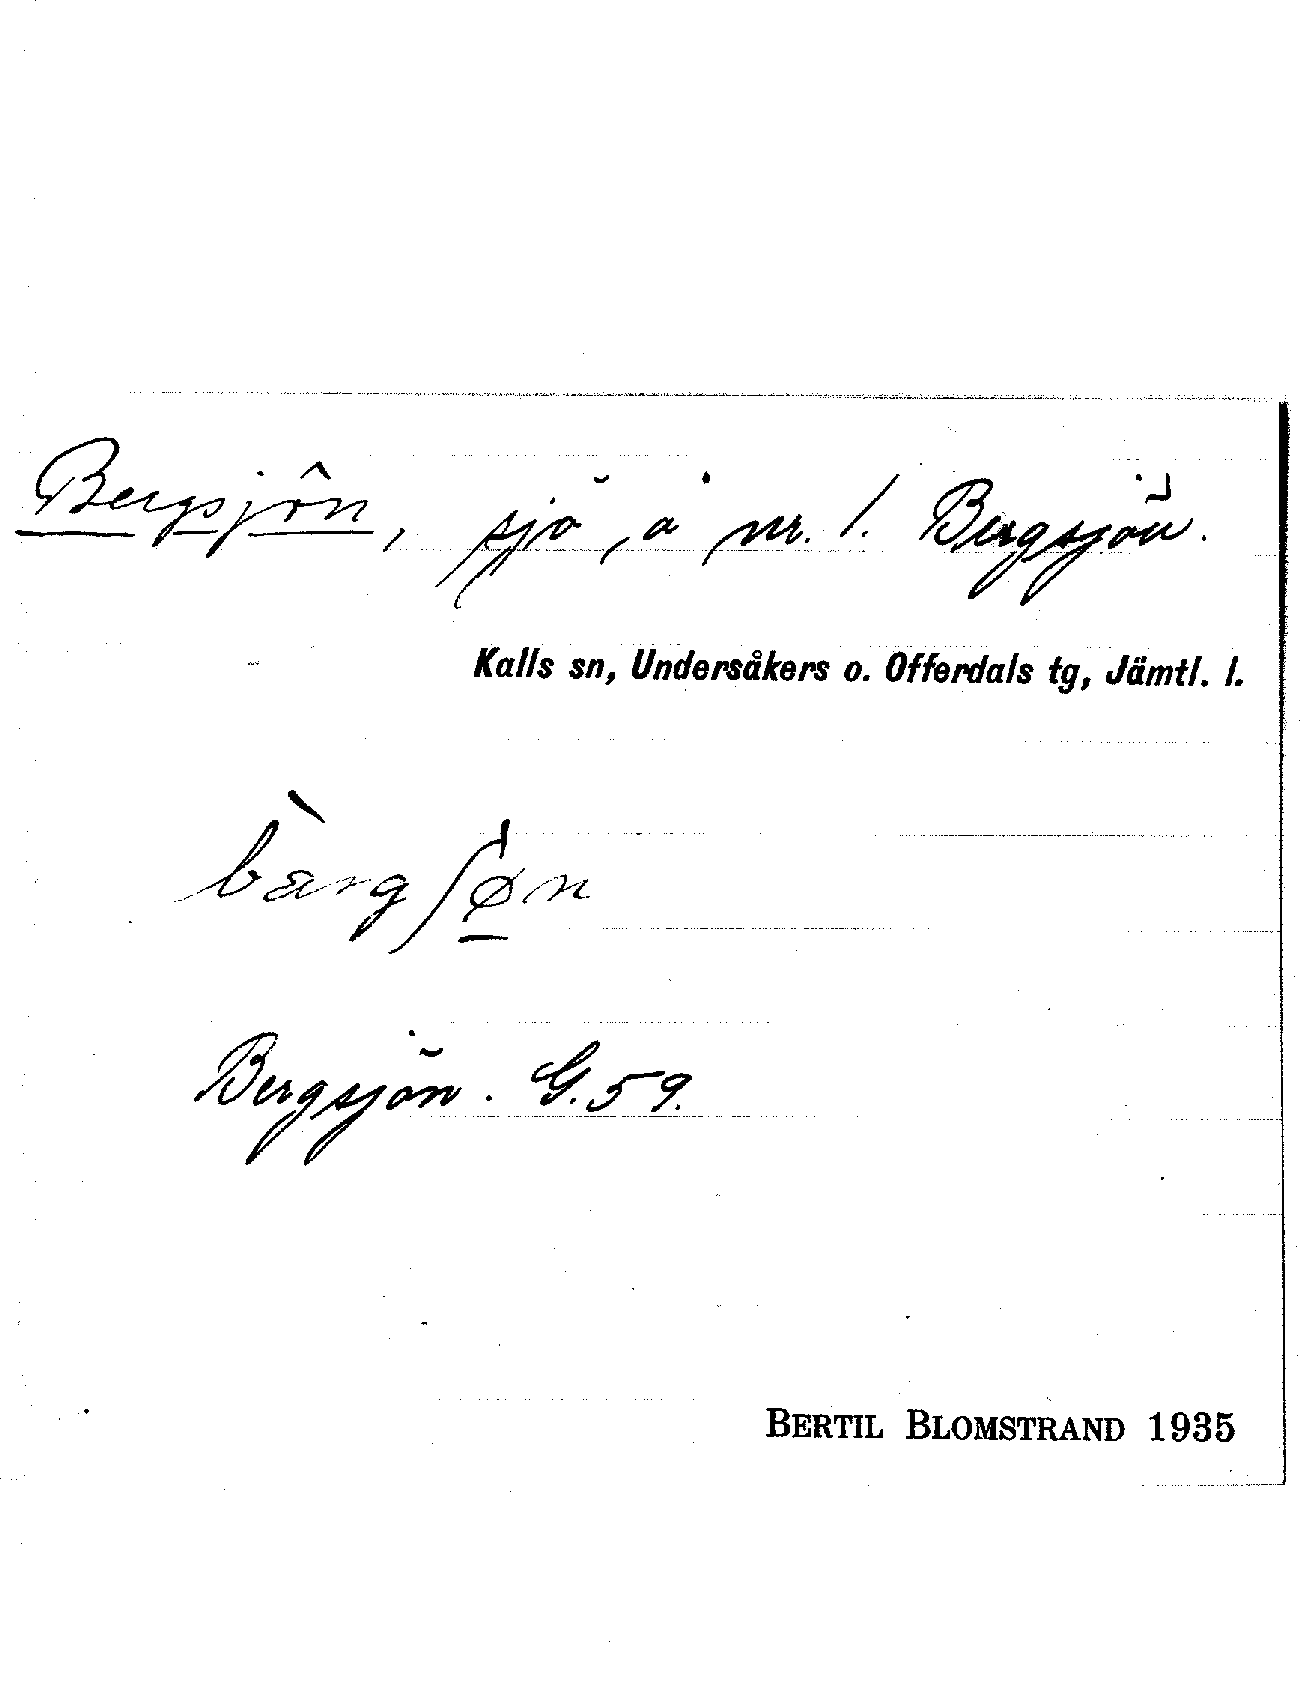 Bergsjön, sjö, å nr. 1. Bergsjön.
Kalls sn, Undersåkers o. Offerdals tg, Jämtl. l.
bàrgʃø̠n
Bergsjön. G.59.
BERTIL BLOMSTRAND 1935